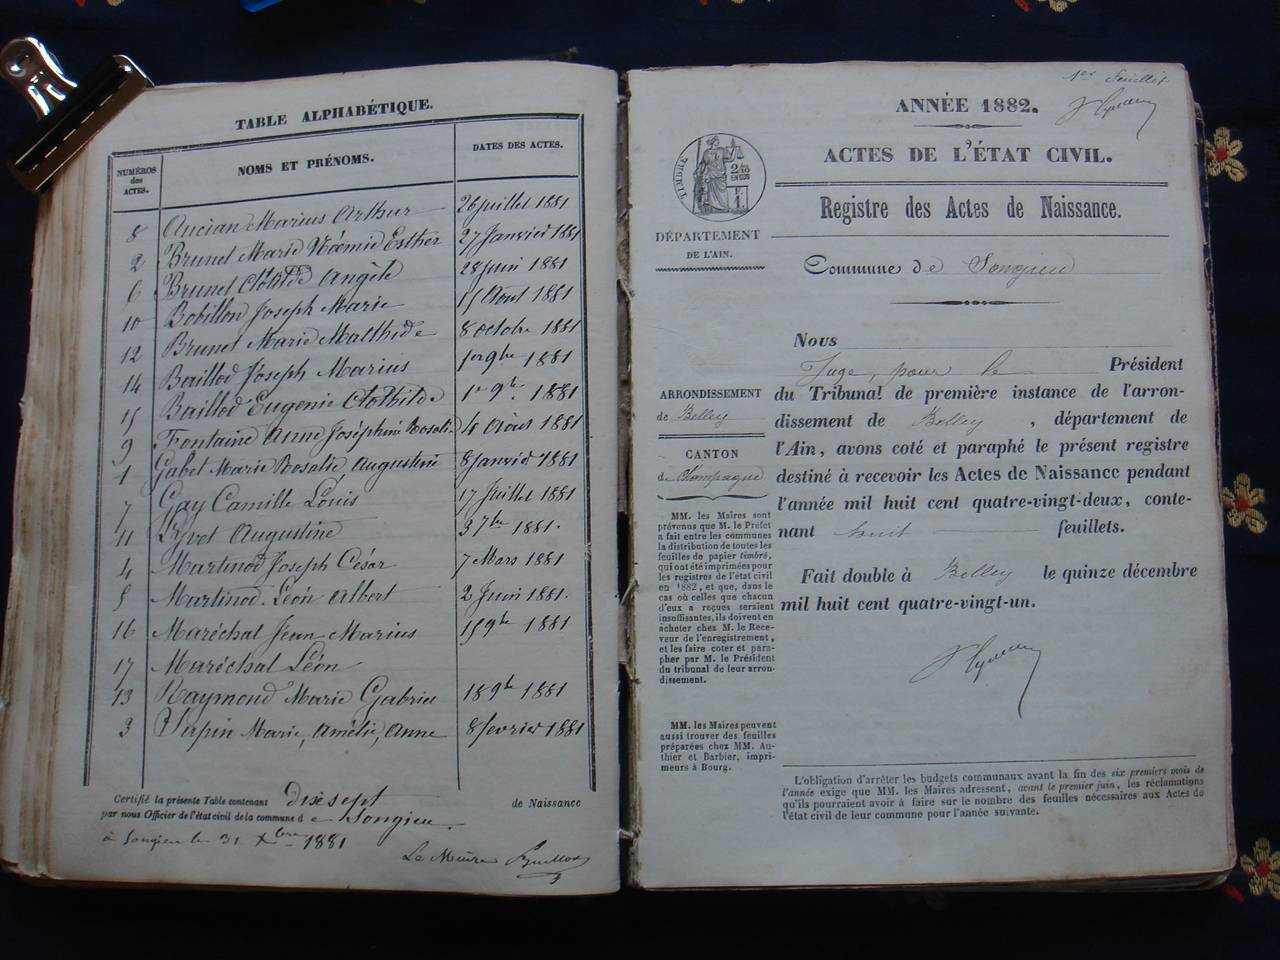 TABLE ALPHABÉTIQUE.
NUMÉROS des ACTES.
NOMS ET PRÉNOMS.
DATES DES ACTES.
8 Ancian Marius Arthur 26 juillet 1881
2 Brunet Marie Noémie Esther 27 Janvier 1881
6 Brunet Clotilde Angèle 28 juin 1881
10 Bobillon Joseph Marie 15 Aout 1881
12 Brunet Marie Malthide 8 octobre 1881
14 Baillod Joseph Marius 1er 9bre 1881
15 Baillod Eugenie Clothilde 1er 9bre 1881
9 Fontaine Anne Joséphine Rosalie 4 Aout 1881
1 Gabet Marie Rosalie, Augustine 8 janvier 1881
7 Gay Camille Louis 17 Juillet 1881
11 Lyvet Augustine 3 7bre 1881.
4 Martinod Joseph César 7 Mars 1881
5 Martinod Léon Albert 2 Juin 1881.
16 Maréchal Jean Marius 15 9bre 1881
17 Maréchal Léon
13 Raymond Marie Gabriel 18 9bre 1881
3 Serpin Marie, Amélie, Anne 8 fevrier 1881
Certifié la présente Table contenant dix sept de Naissance
par nous Officier de l'état civil de la commune d e Songieu.
à Songieu le 31 Xbre 1881
Le Maire
1er Feuillet
ANNÉE 1882.
ACTES DE L'ÉTAT CIVIL.
TIMBRE
Registre des Actes de Naissance.
DÉPARTEMENT
DE L'AIN.
Commune de Songieu
Nous
Juge, pour le Président
du Tribunal de première instance de l'arron-
dissement de Belley, département de
l'Ain, avons coté et paraphé le présent registre
destiné à recevoir les Actes de Naissance pendant
l'année mil huit cent quatre-vingt-deux, conte-
nant huit feuillets.
Fait double à Belley le quinze décembre
mil huit cent quatre-vingt-un.
ARRONDISSEMENT
de Belley
CANTON
de Champagne
MM. les Maires sont
prévenus que M. le Préfet
a fait entre les communes
la distribution de toutes les
feuilles de papier timbré,
qui ont été imprimées pour
les registres de l'état civil
en 1882, et que, dans le
cas où celles que chacun
d'eux a reçues seraient
insuffisantes, ils doivent en
acheter chez M. le Rece-
veur de l'enregistrement,
et les faire coter et para-
pher par M. le Président
du tribunal de leur arron-
dissement.
MM. les Maires peuvent
aussi trouver des feuilles
préparées chez MM. Au-
thier et Barbier, impri-
meurs à Bourg.
L'obligation d'arrêter les budgets communaux avant la fin des six premiers mois de
l'année exige que MM. les Maires adressent, avant le premier juin, les réclamations
qu'ils pourraient avoir à faire sur le nombre des feuilles nécessaires aux Actes de
l'état civil de leur commune pour l'année suivante.